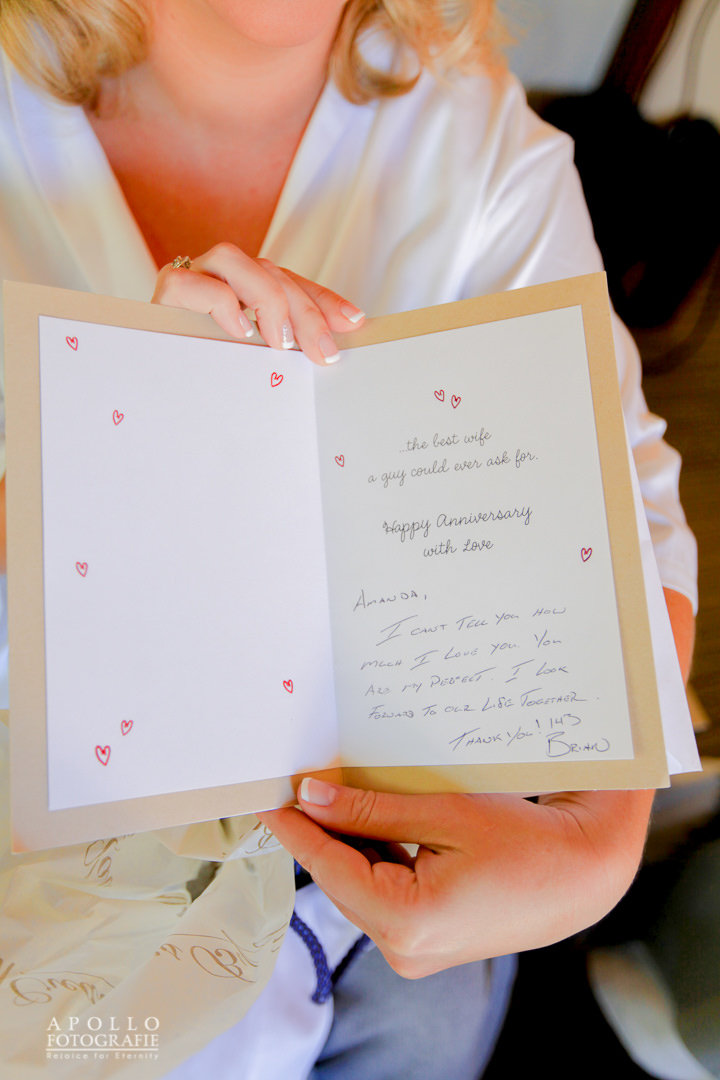 ...the best wife
a guy could ever ask for.
Happy Anniversary
with Love
AMANDA,
I CANT TELL YOU HOW
MUCH I LOVE YOU. YOU
ARE MY PERFECT. I LOOK
FORWARD TO OUR LIFE TOGETHER.
THANK YOU! 143
BRIAN
APOLLO
FOTOGRAFIE
Rejoice for Eternity